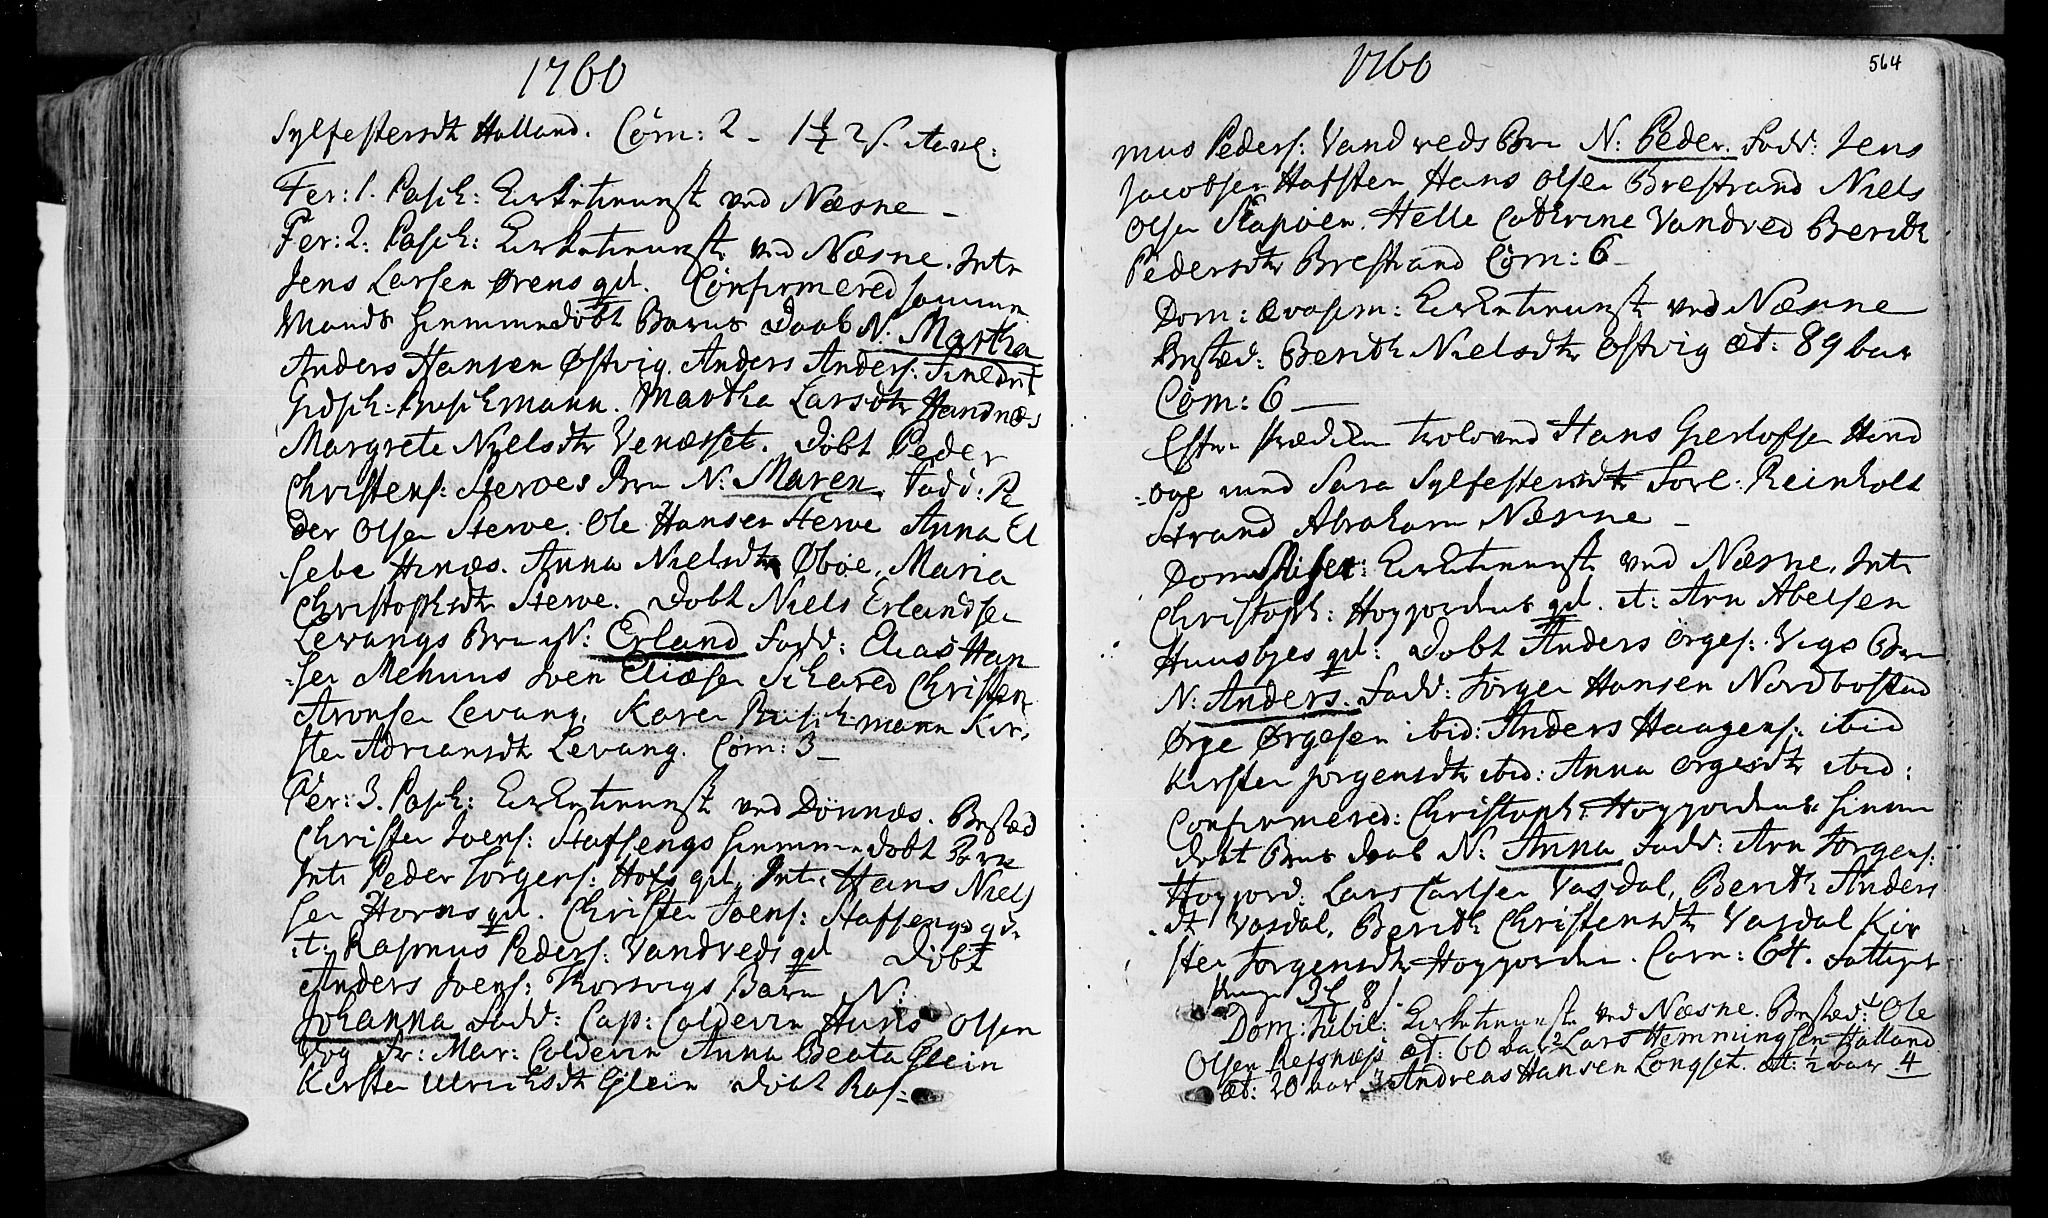 1760
Sylfestersdtr Holland. Com: 2 -
Fer: 1. Pasch: Kirketienniste ved Næsne -
Fer: 2: Pasch: Kirketienniste ved Næsne. Intr
Jens Larsen Ørens qd. Confirmered samme
Mands hiemmedöbt Barns Daab N: Martha
Anders Hansen Østvig. Anders Anders:
Martha Larsdtr Handnæs
Margrete Nielsdtr Venæsset. Döbt Peder
Christens: Sterves Brn N: Maren. Fadd: Pe
der Olsen Sterve. Ole Hansen Sterve Anna El
sebe Hinæs. Anna Nielsdtr Öböe. Maria
Christophsdtr Sterve. Döbt Niels Erlandsen
Levangs Brn N: Erland Fadd: Elias Han
sen Mehuus Joen Eliæsen Schared Christen
Aronsen Levang. Karen Buschmann Kir
sten Adriansdtr Levang. Com: 3 -
Fer: 3. Pasch: Kirketienniste ved Dönnæs. Bested
Christen Joens: Staffengs hiemmedöbt Barn
Intr Peder Jörgens: Hofs qd. Intr: Hans Niels
sen Horns qd. Christen Joens: Staffengs qd.
it: Rasmus Peders: Vandveds qd Döbt
Anders Joens: Korsvigs Barn N:
Johanna Fadd: Cap: Coldevin Hans Olsen
Vog Fr: Mar: Coldevin Anna Beata Glein
Kirsten Ulrichsdtr Glein Döbt Ras-
1760
564
mus Peders: Vandveds Brn N: Peder. Fadd: Jens
Jacobsen Hafsten Hans Olsen Brestrand Niels
Olsen Stapöen. Helle Cathrine Vandved Berith
Pedersdtr Brestrand Com: 6 -
Dom: Qvasim: Kirketienniste ved Næsne
Bested: Berith Nielsdtr Östvig æt: 89 aar
Com: 6 -
Efter Prædiken troloved Hans Gerlofsen Hund
oge med Sara Sylfestersdtr Forl: Reinholt
Strand Abraham Næsne -
Dom: Miser: Kirketienniste ved Næsne. Intr
Christoph: Hogjordens qd. it: Arn Abelsen
Huusbyes qd: Döbt Anders Örges: Vigs Brn
N: Anders. Fadd: Jörgen Hansen Nordbostad
Ørge Ørgesen ibid: Anders Haagens: ibid
Kirsten Jörgensdtr ibid: Anna Örgesdtr ibid:
Confirmered: Christoph: Hogjordens hiemme
döbt Brns daab N: Anna Fadd: Arn Jörgens:
Hogjord: Lars Carlsen Vasdal, Berith Anders
dtr Vasdal, Berith Christensdtr Vasdal Kir
sten Jörgensdtr Hogjorden. Com: 64. Fattiges
Penge 3 8 s.
Dom: Jubil: Kirketienniste ved Næsne. Bested: Ole
Olsen Refsnæss æt: 60 aar 2 Lars Hemmingsen Holland
æt: 20 aar 3 Andreas Hansen Longset. æt: ½ aar 4